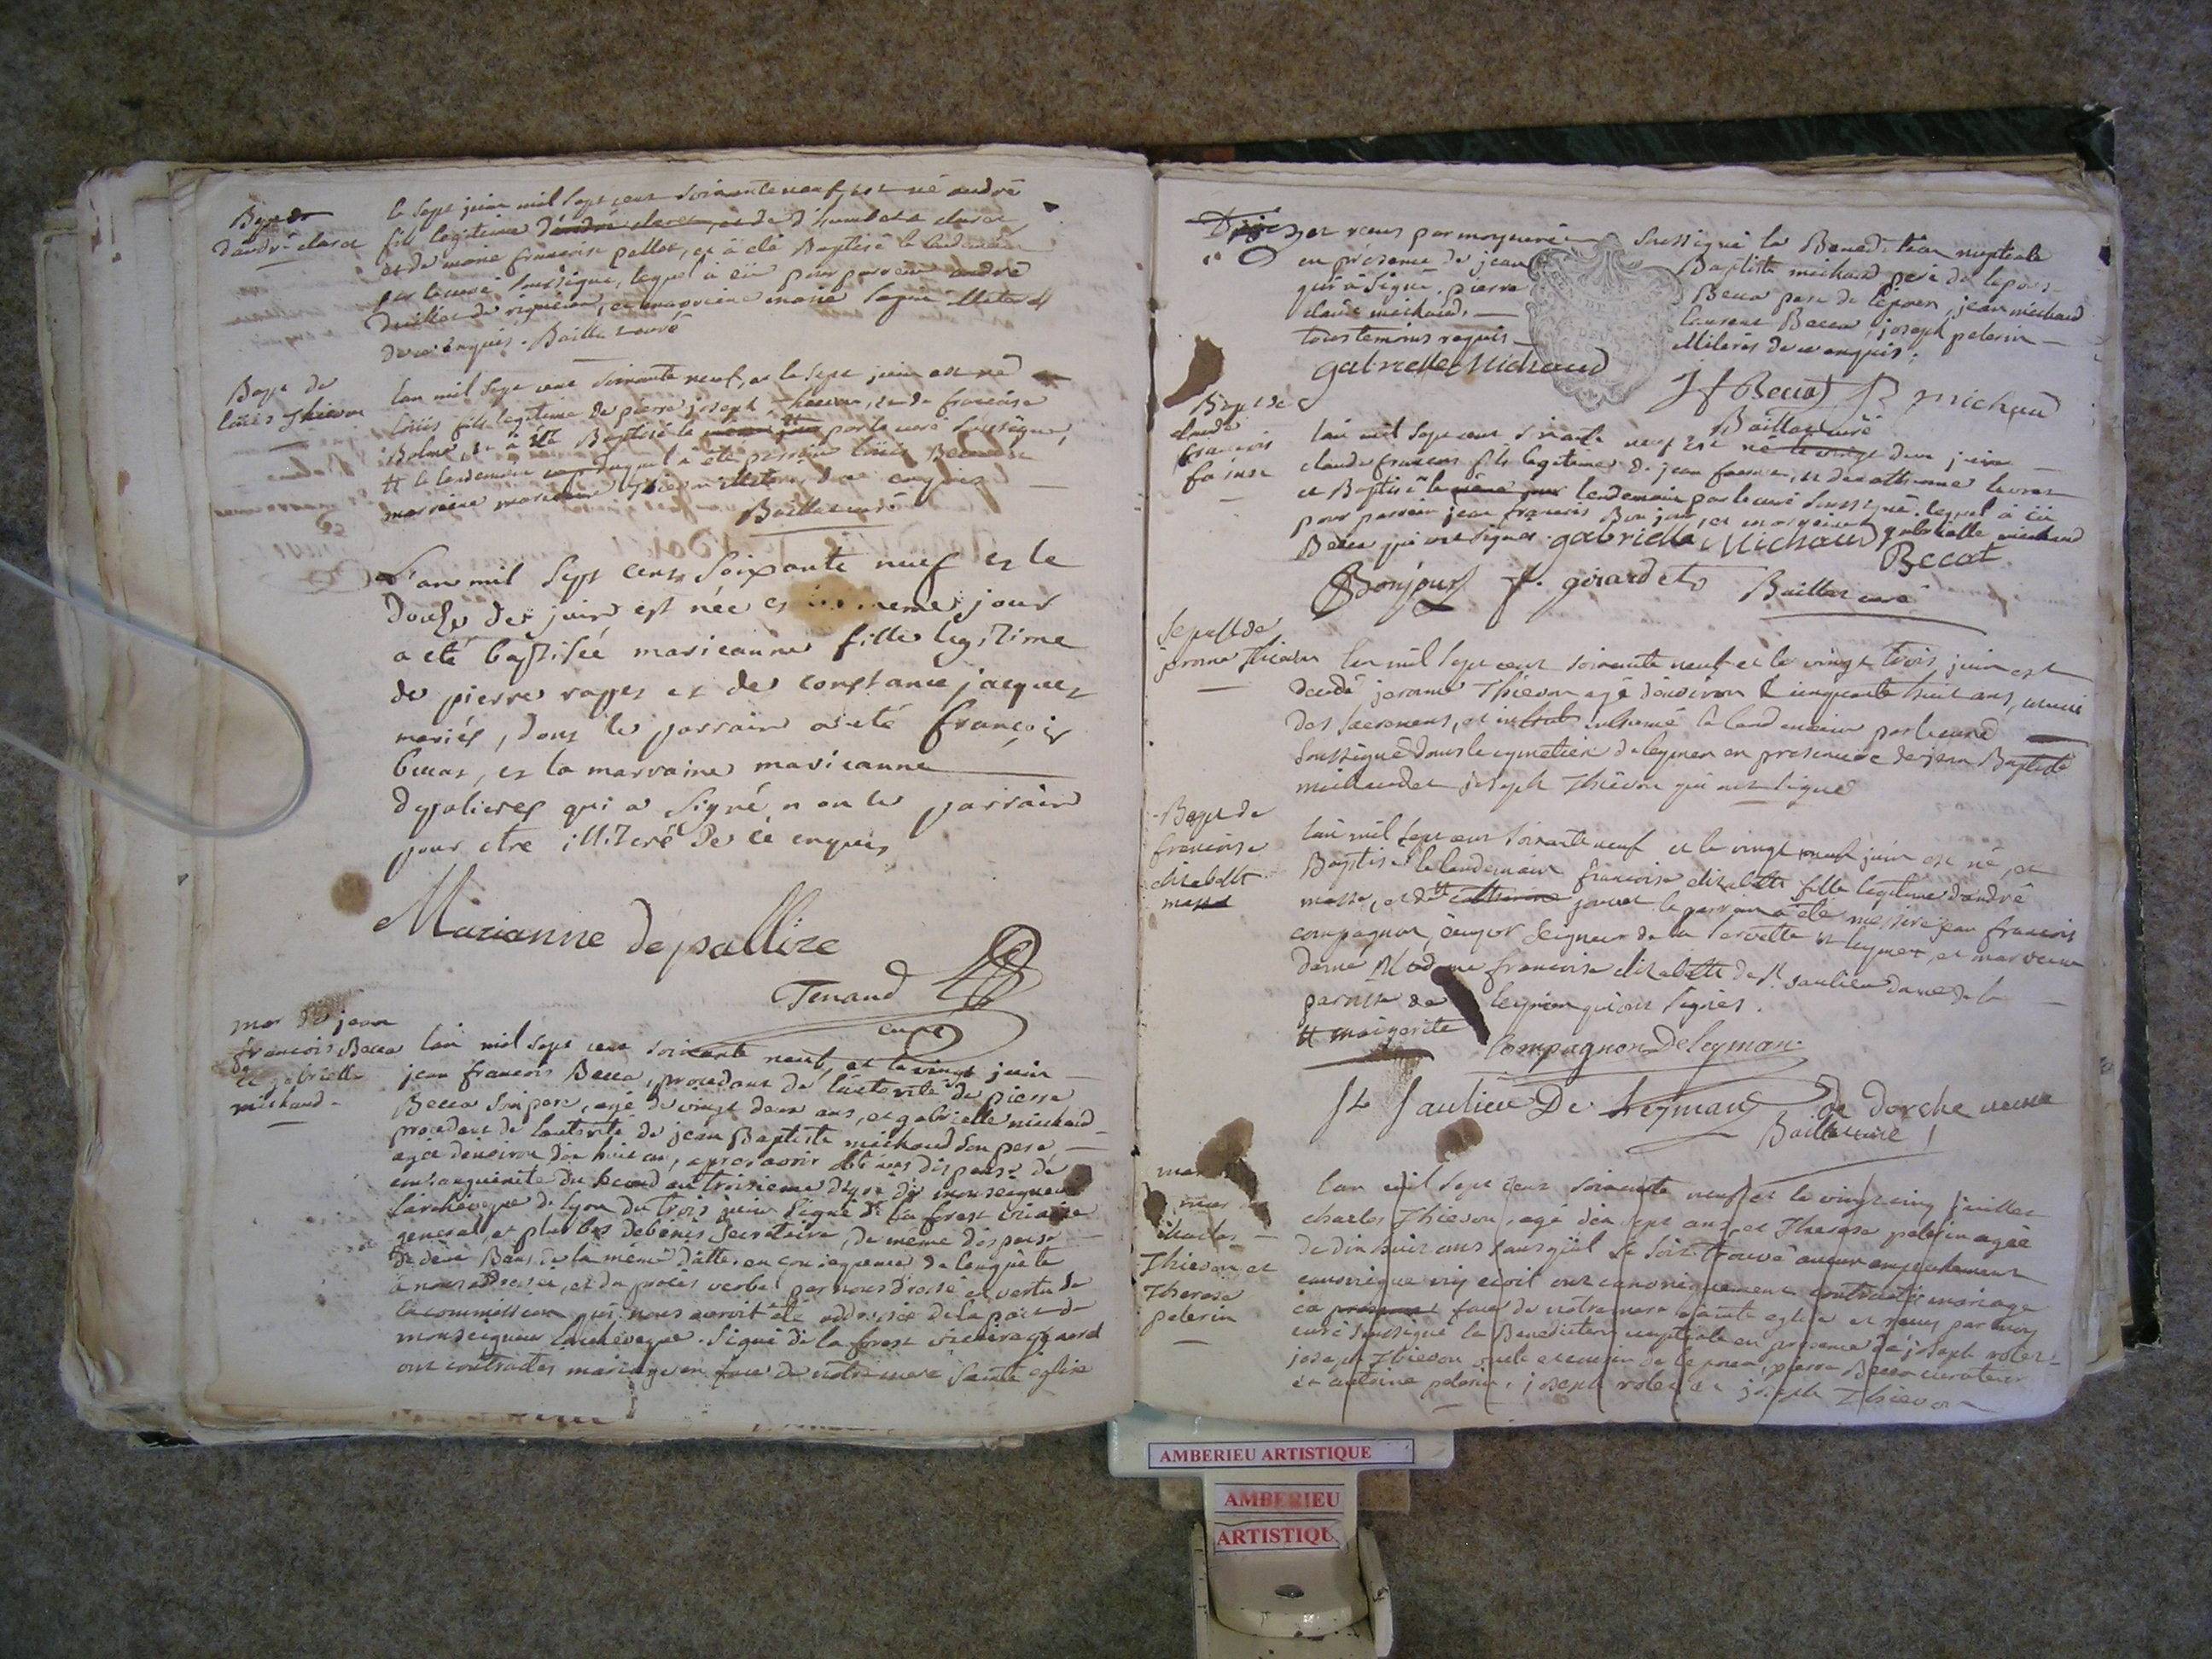 Bapt de
d'andré claret
le sept juin mil sept cent soixante neuf, est né andré
fils legitime d'andré claret, et de d humbert claret
et de marie francoise pellet, et à été Baptisé le lendemain
par le curé soussigné, lequel a eü pour parrein andré
de rignieu, et marreine marie
de ce enquis. Baillat curé
Bapt de
loüis Thievon
lan mil sept cent soixante neuf, et le sept juin est né
loüis fils legitime de pierre joseph Thievon, et de francoise
Bolme et à été Baptisé le même jour par le curé soussigné,
# le lendemain duquel a été parrein loüis
marreine de ce enquis
Baillat curé
L'an mil sept cent soixante neuf et le
douze de juin est née et le meme jour
a eté baptisée marieanne fille legitime
de pierre rappet et de constance jacquet
mariés, dont le parrain a eté françois
becat, et la marraine marieanne
depalieres qui a signé non le parrain
pour etre illiteré de ce enquis
Marianne dépallize
Tenand
curé
mar de jean
francois Becca
et gabriella
michaud
lan mil sept cent soixante neuf, et le vingt juin
jean francois Becca, procedant de l'autorité de pierre
Becca son pere, agé de vingt deux ans, et gabrielle michaud
procedant de l'autorité de jean Baptiste michaud son pere
agée denviron dix huit ans, apres avoir obtenus dispense de
consanguinité du second au troisieme degré de monseigneur
l'archeveque de lyon du trois juin signé de la forest vicaire
general, et plus bas debenis secretaire, de même dispense
de deux Bans de la même datte, en consequence de lenquete
à nous addressée, et du proces verbal par nous dressé en vertu de
la commission qui nous auroit été addressée de la part de
monseigneur larcheveque. signé de la forest vicaire general
ont contractés mariage en face de nôtre mere sainte eglise
et recus par moy curé soussigné la Benediction nuptiale
en présence de jean Baptiste michaud pere de lepouse
qui à signé, pierre Becca pere de lepoux, jean michaud
claude michaud, laurent Becca, joseph pelerin
tous temoins requis illiterés de ce enquis.
gabrielle Michaud
J f Becat B michaud
Baillat curé
Bapt de
claude
francois
lan mil sept cent soixante neuf est né le vingt deux juin
claude francois fils legitime de jean et de
et Baptisé le même jour lendemain par le curé soussigné. lequel à eü
pour parrein jean francois Bonjour, et marreine gabrielle michaud
Becca qui ont signés. gabriella Michaud
Becat
Bonjour f. girardet Baillat curé
sepult de
jerome Thievon
lan mil sept cent soixante neuf et le vingt trois juin est
decedé jerome Thievon agé denviron cinquante huit ans, munis
des sacremens, et inhumé le lendemain par le curé
soussigné dans le cymetiere de leymen en presence de jean Baptiste
michaud et joseph Thievon qui ont signé
Bapt de
francoise
elizabeth
masse
lan mil sept cent soixante neuf et le vingt neuf juin est né, et
Baptisé le lendemain francoise elizabeth fille legitime d'andré
masse, et d# catherine jouvet le parrein a été messire jean francois
compagnon, ecuyer seigneur de la servette et leymen, et marreine
dame Madame francoise elizabeth de st. saulieu dame de la
paroisse de leymen qui ont signés.
# margerite
Compagnon De leyman
St Saulieu De Leyman de dorche
Baillat curé
mar
charles
Thievon et
Therese
pelerin
lan mil sept cent soixante neuf et le vingt cinq juillet
charles Thievon, agé dix sept ans et Therese pelerin agée
de dix huit ans sans qu'il se soit trouvé aucun empechement
canonique ny civil ont canoniquement contractés mariage
en presence face de notre mere sainte eglise et recus par moy
curé soussigné la Benediction nuptiale en presence de joseph rolet
joseph Thievon oncle et cousin de lepoux, pierre Becca curateur
et antoine pelerin, joseph rolet et joseph Thievon
AMBERIEU ARTISTIQUE
AMBERIEU
ARTISTIQU